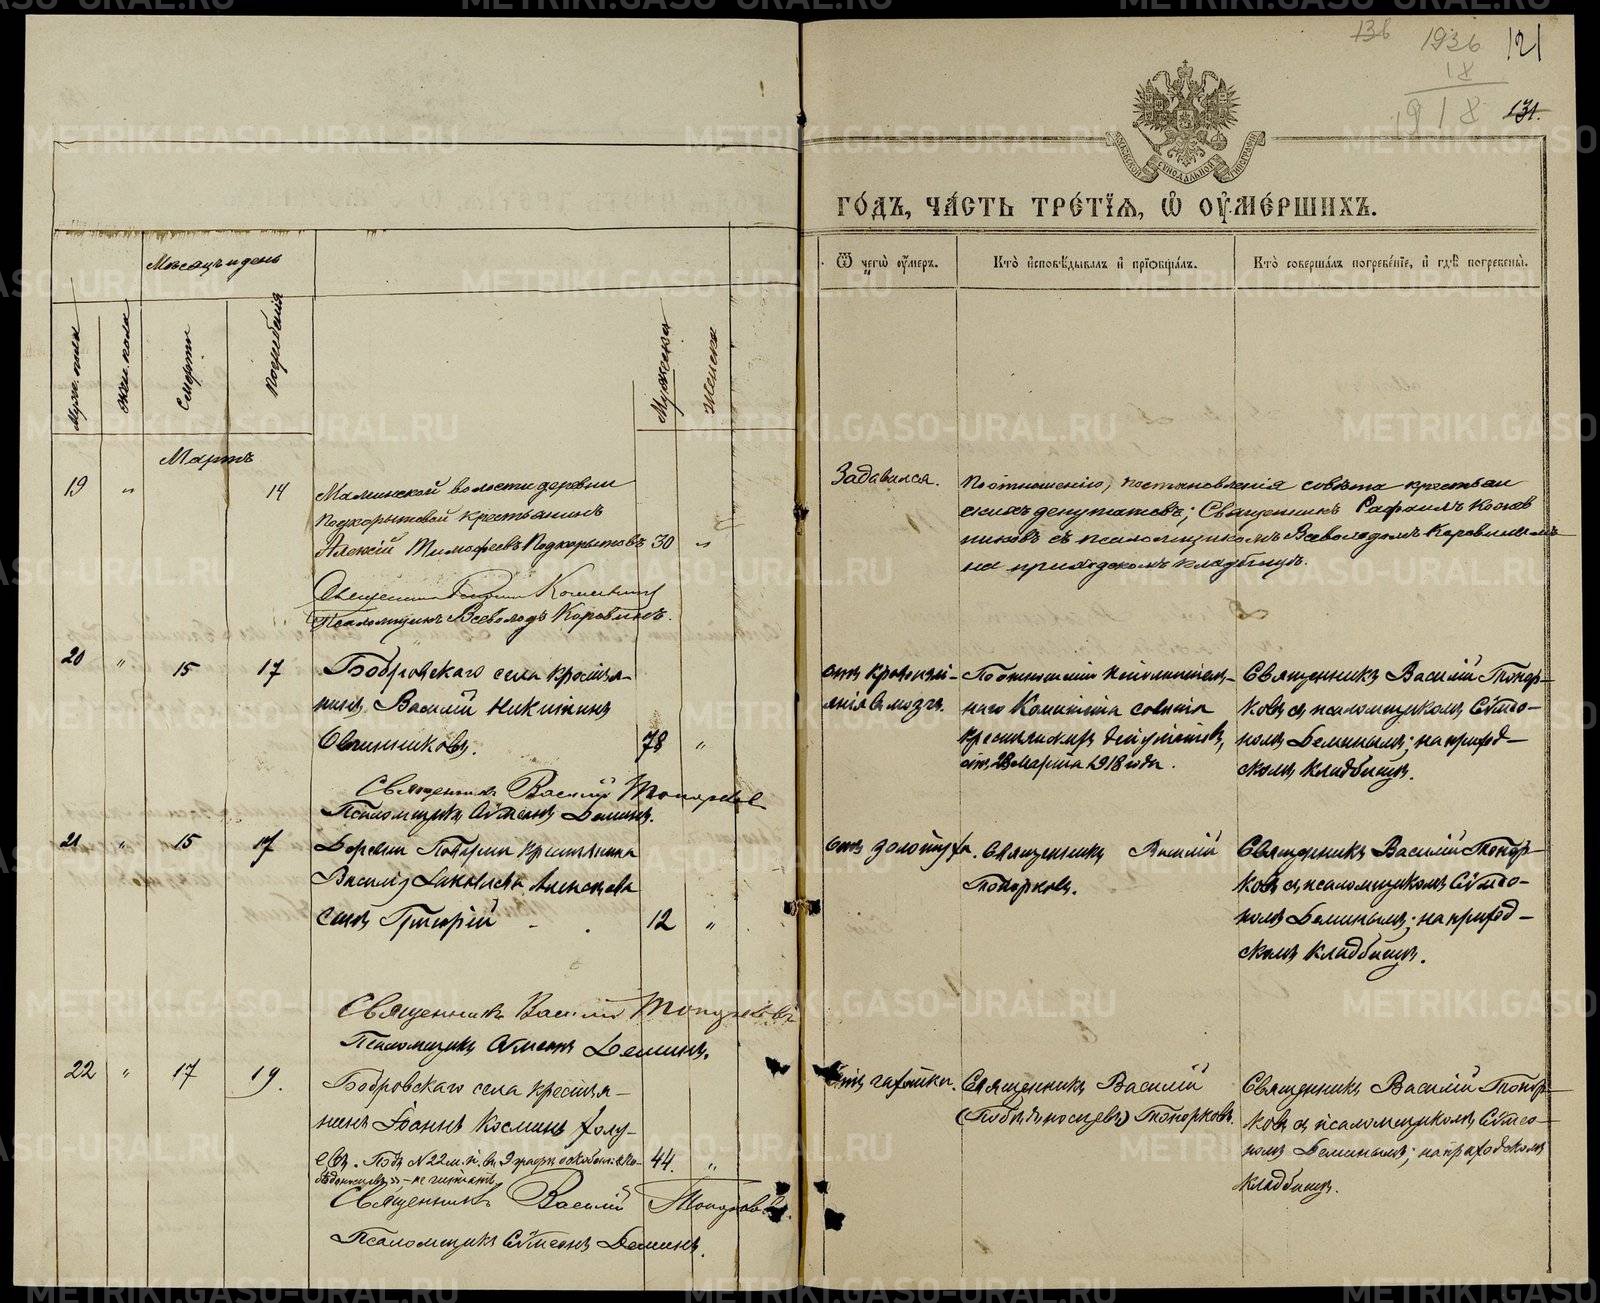 136
1936
18
1918
121
131.
МОСКОВСКОЙ СУНОДАЛЬНОЙ ТИПОГРАФІИ
ГО́ДЪ, ЧА́СТЬ ТРЕ́ТІѦ, Ѡ҆ ОУ҆МЕ́РШИХЪ.
Мѣсяцъ и день
Муж. пола
Жен. пола
Смерти
Погребенія
Мужеска
Женска
Ѿ чегѡ̀ оу҆́меръ.
Кто̀ и҆сповѣ́дывалъ и҆ прїѡбща́лъ.
Кто̀ соверша́лъ погребе́нїе, и҆ гдѣ̀ погребены̀.
Мартъ
19 " 14
Маминской волости деревни
Подкорытовой крестьянинъ
Алексій Тимофеевъ Подкорытовъ 30 "
Священникъ
Псаломщикъ Всеволодъ Коровинъ.
Задавился.
По отношенію, постановленія совѣта крестьян
скихъ депутатовъ; Священникъ Рафаилъ
съ псаломщикомъ Всеволодомъ Коровинымъ
на приходскомъ кладбищѣ.
20 " 15 17
Бобровскаго села крестья-
нинъ Василій Никитинъ
Овчинниковъ. 78 "
Священникъ Василій Топорковъ
Псаломщикъ Сѵмеонъ Деминъ.
отъ кровоизлі-
янія в мозгъ.
По отношенію исполнитель-
наго Комитета совѣта
крестьянскихъ депутатовъ,
отъ 28 марта 1918 года.
Священникъ Василій Топор-
ковъ съ псаломщикомъ Сѵмео-
номъ Деминымъ; на приход-
скомъ кладбищѣ.
21 " 15 17
Деревни крестьянина
Василія
сынъ Григорій 12 "
Священникъ Василій Топорковъ
Псаломщикъ Сѵмеонъ Деминъ.
отъ золотухи.
Священникъ Василій
Топорковъ.
Священникъ Василій Топор-
ковъ съ псаломщикомъ Сѵмео-
номъ Деминымъ; на приход-
скомъ кладбищѣ.
22 " 17 19.
Бобровскаго села крестья-
нинъ Іоаннъ Косминъ Голу-
бевъ. Подъ N 22 м. п. въ 3 графѣ 44. "
– не читать
Священникъ Василій Топорковъ.
Псаломщикъ Сѵмеонъ Деминъ.
отъ чахотки.
Священникъ Василій
(Побѣдоносцевъ) Топорковъ.
Священникъ Василій Топор-
ковъ съ псаломщикомъ Сѵмео-
номъ Деминымъ; на приходскомъ
кладбищѣ.
METRIKI.GASO-URAL.RU